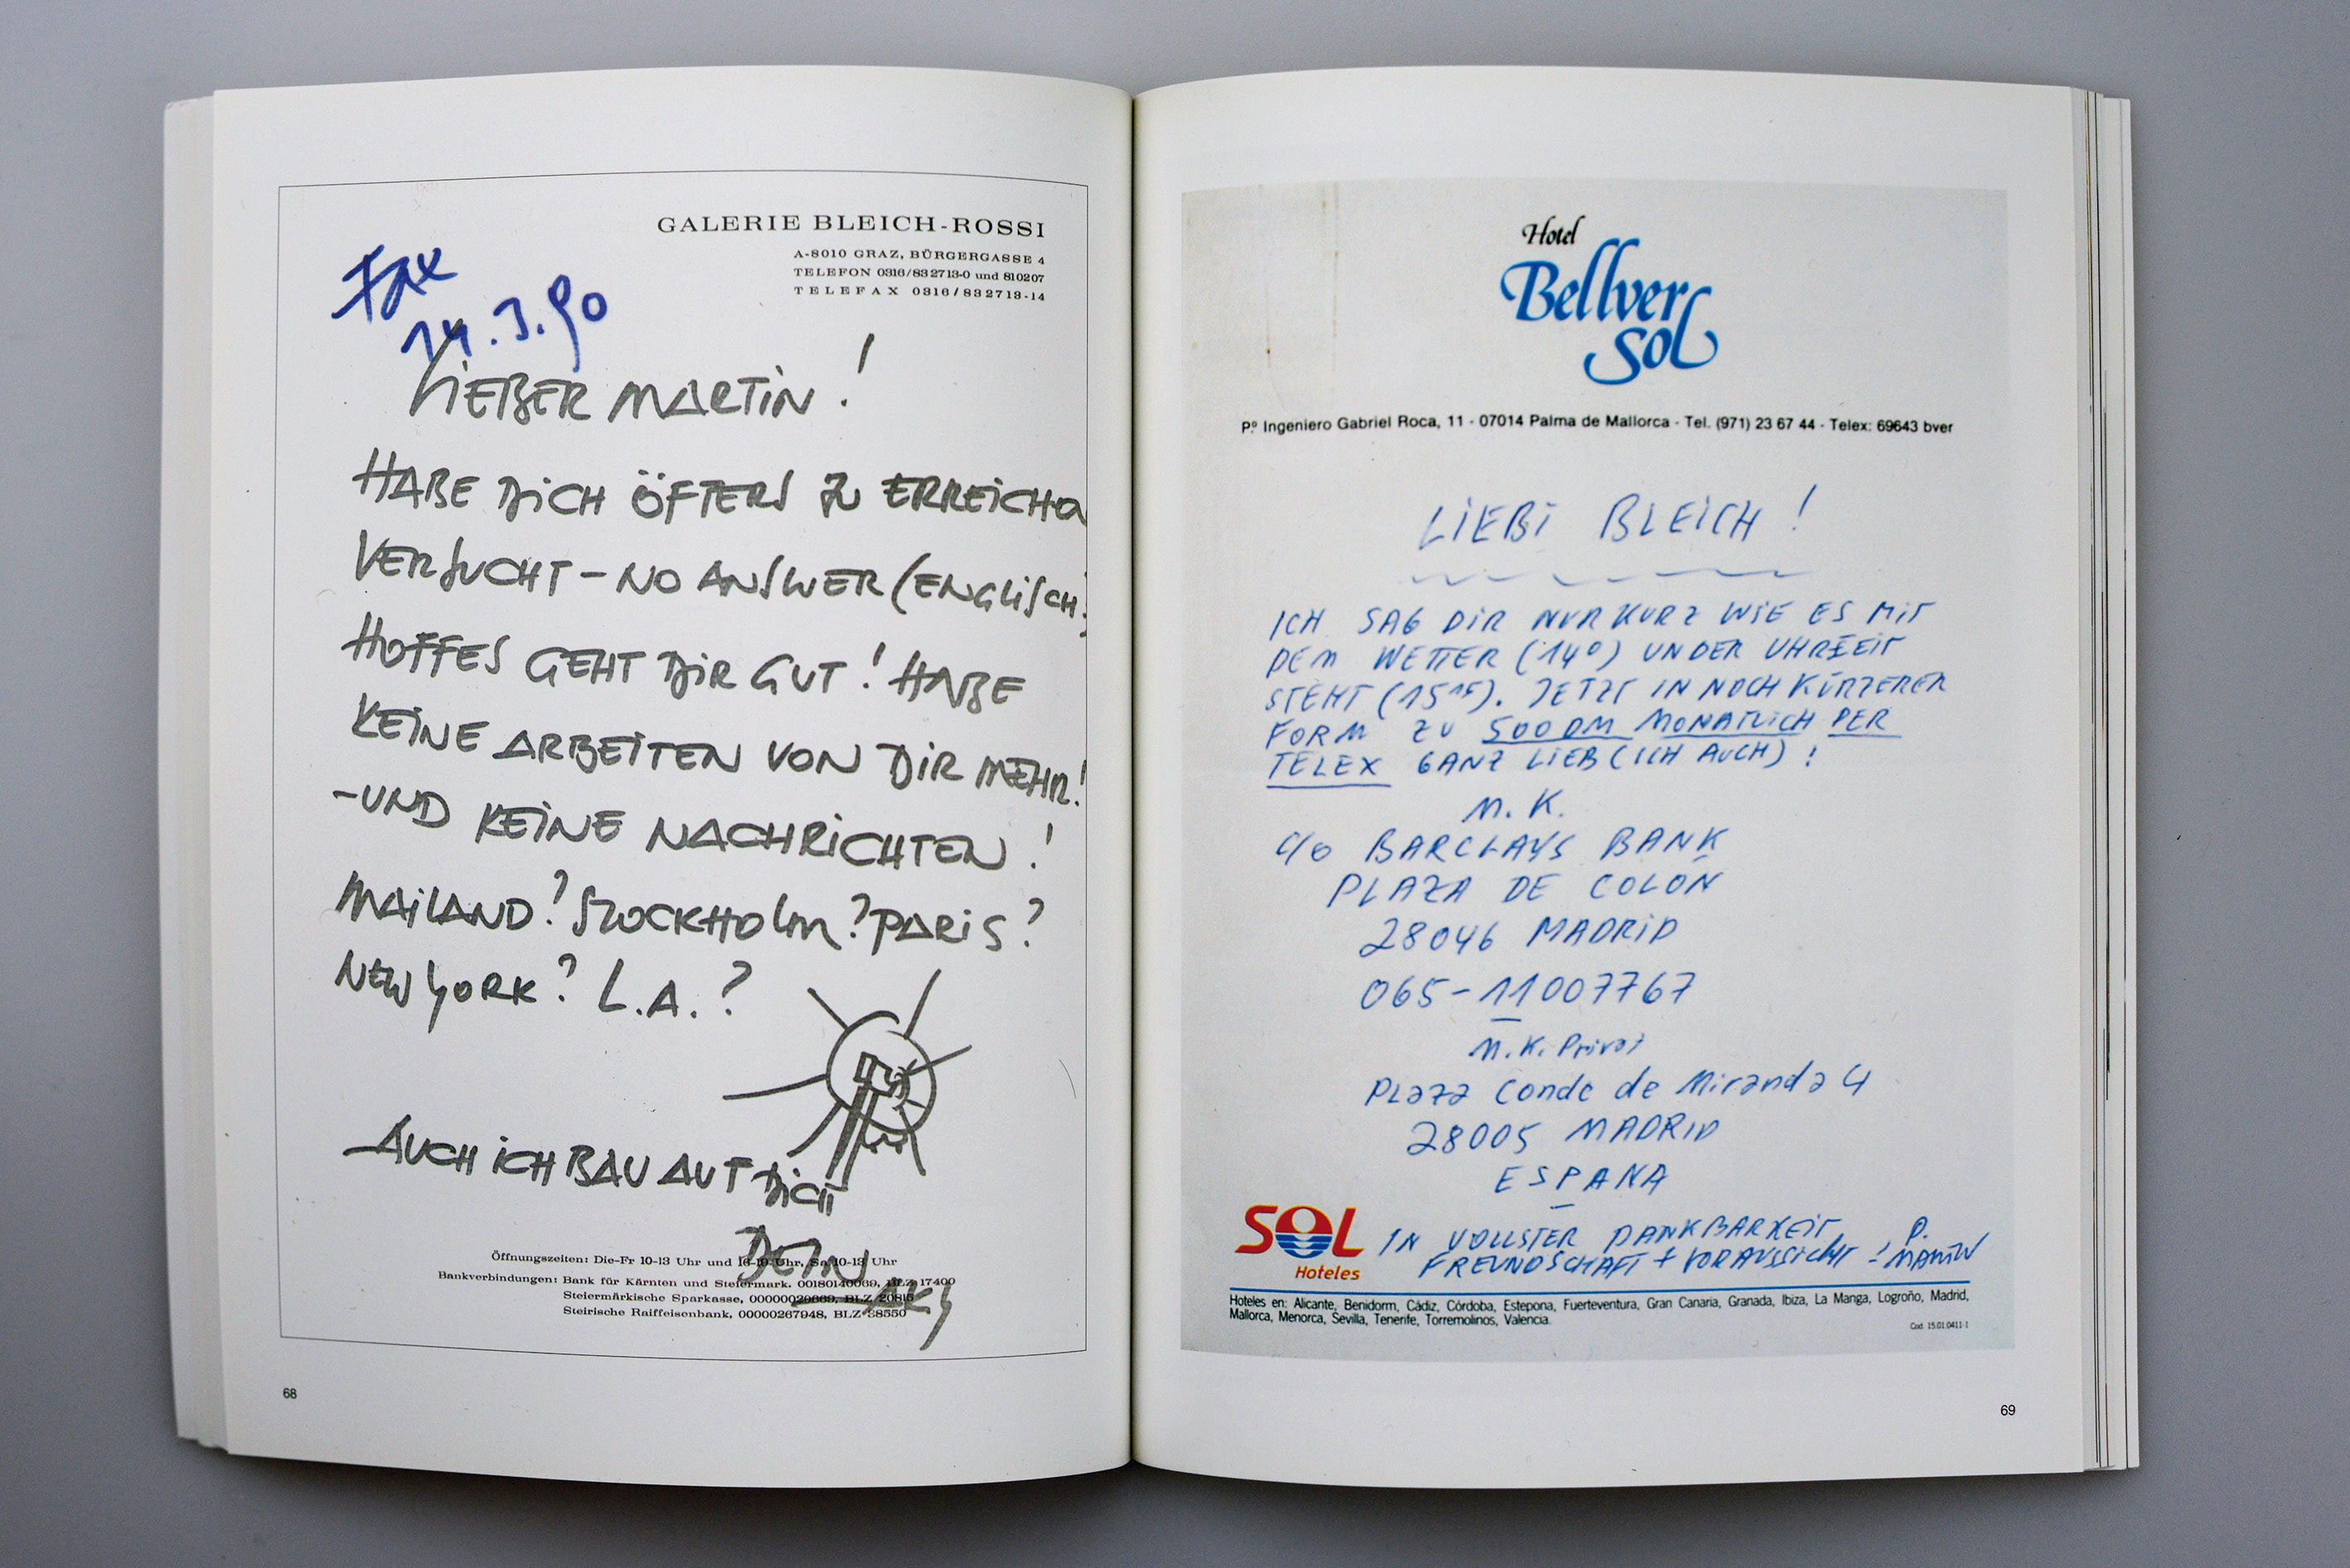 GALERIE BLEICH-ROSSI
A-8010 GRAZ, BÜRGERGASSE 4
TELEFON 0316/832713-0 und 810207
TELEFAX 0316/832713-14
Fax
14.3.90
LIEBER MARTIN!
HABE DICH ÖFTERS ZU
VERSUCHT – NO ANSWER (ENGLISCH
HOFFES GEHT DIR GUT! HABE
KEINE ARBEITEN VON DIR MEHR!
– UND KEINE NACHRICHTEN!
MAILAND? STOCKHOLM? PARIS?
NEW YORK? L.A.?
– AUCH ICH BAU AUF DICH
DEIN
Öffnungszeiten: Die-Fr 10-13 Uhr und 16-19 Uhr, Sa 10-13 Uhr
Bankverbindungen: Bank für Kärnten und Steiermark, BLZ 17400
Steiermärkische Sparkasse, BLZ 20815
Steirische Raiffeisenbank, 00000267948, BLZ 38550
68
Hotel
Bellver
Sol
Pº Ingeniero Gabriel Roca, 11 - 07014 Palma de Mallorca - Tel. (971) 23 67 44 - Telex: 69643 bver
LIEBI BLEICH!
ICH SAG DIR NUR KURZ WIE ES MIT
DEM WETTER (14º) UND DER UHRZEIT
STEHT (15¹⁵). JETZT IN NOCH KÜRZERER
FORM ZU 500 DM MONATLICH PER
TELEX GANZ LIEB (ICH AUCH)!
M. K.
c/o BARCLAYS BANK
PLAZA DE COLON
28046 MADRID
065-11007767
M. K. Privat
Plaza Conde de Miranda 4
28005 MADRID
ESPANA
IN VOLLSTER DANKBARKEIT
FREUNDSCHAFT + VORAUSSICHT! D. MARTIN
SOL
Hoteles
Hoteles en: Alicante, Benidorm, Cádiz, Córdoba, Estepona, Fuerteventura, Gran Canaria, Granada, Ibiza, La Manga, Logroño, Madrid,
Mallorca, Menorca, Sevilla, Tenerife, Torremolinos, Valencia.
Cod. 15.01.0411-1
69